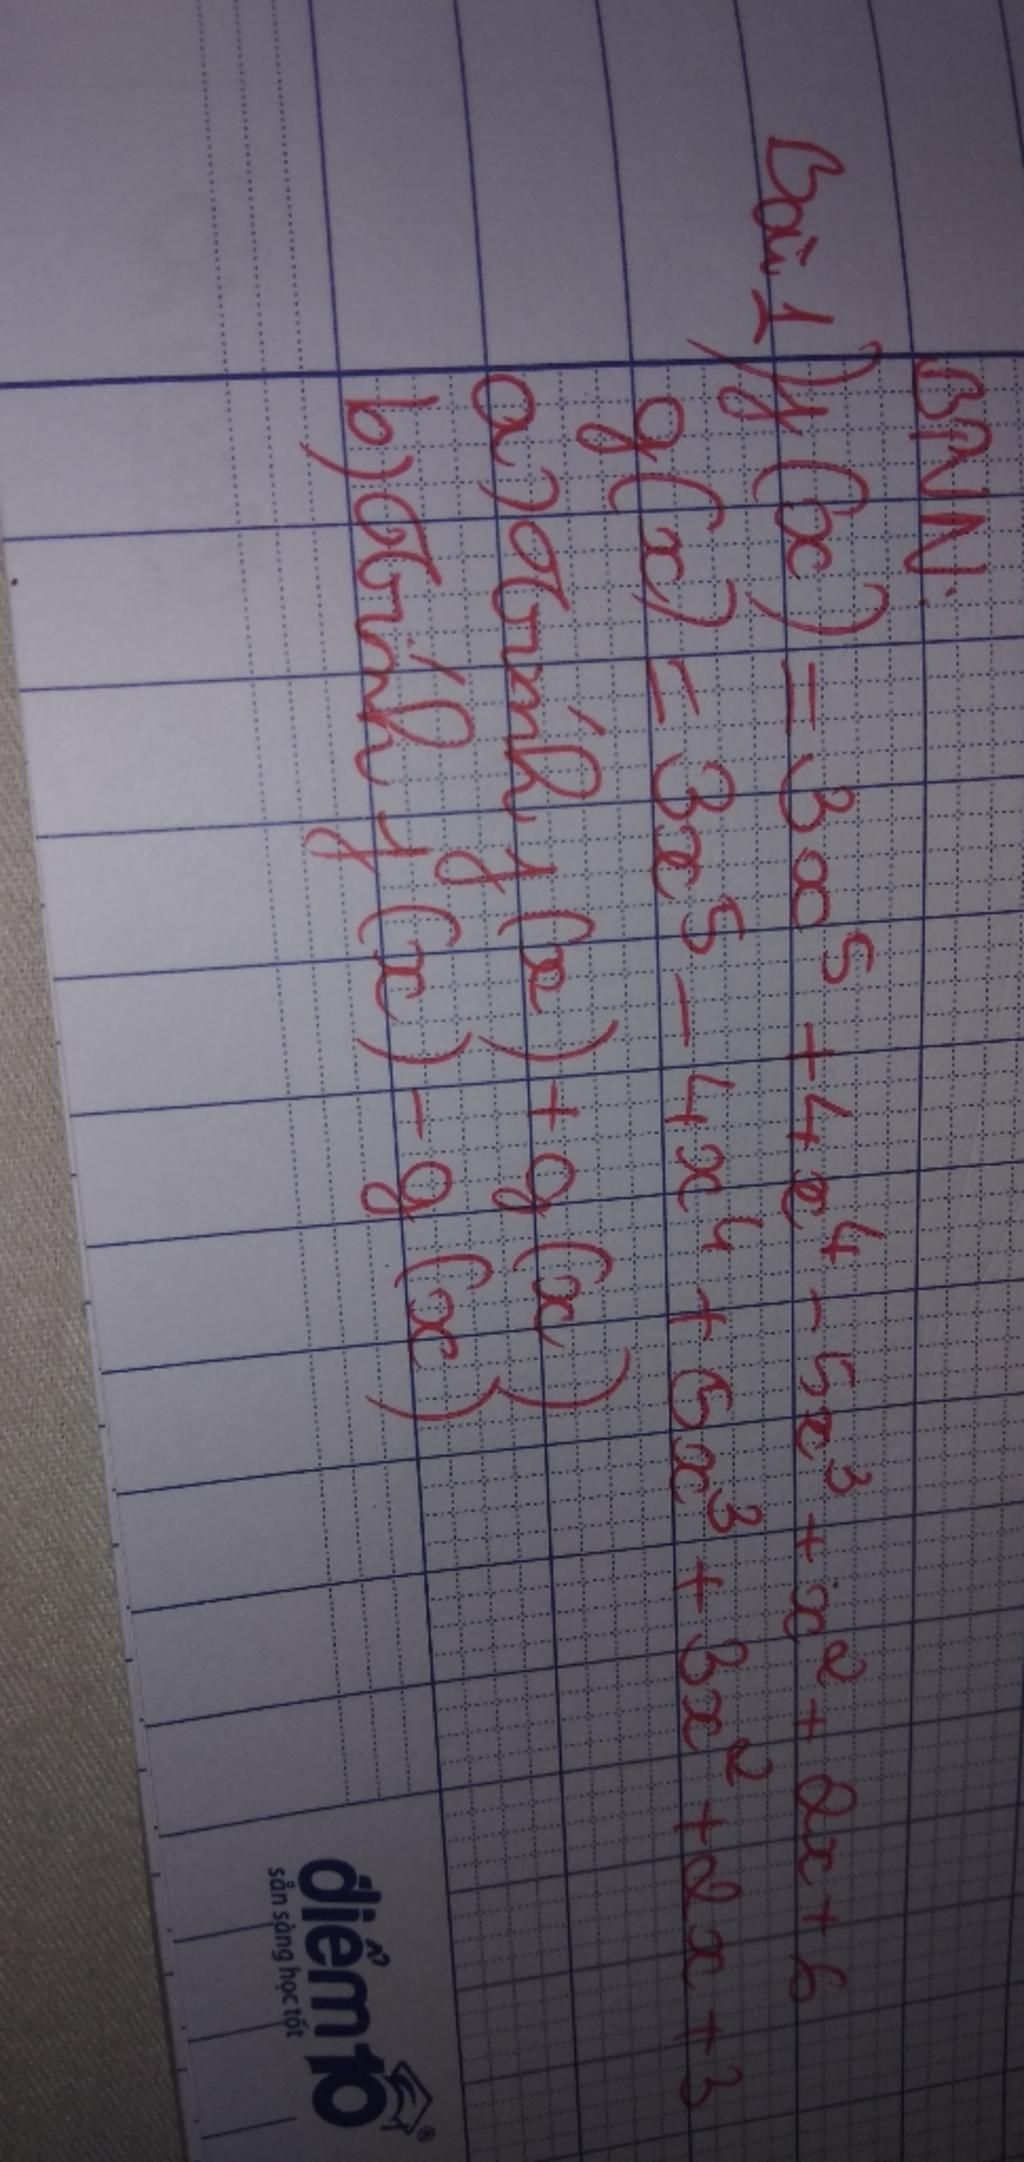 BNN.
Bài 1) f(x) = 3x⁵ + 4x⁴ - 5x³ + x² + 2x + 6
g(x) = 3x⁵ - 4x⁴ + 5x³ + 3x² + 2x + 3
a) Tính f(x) + g(x)
b) Tính f(x) - g(x)
điểm 10
sẵn sàng học tốt